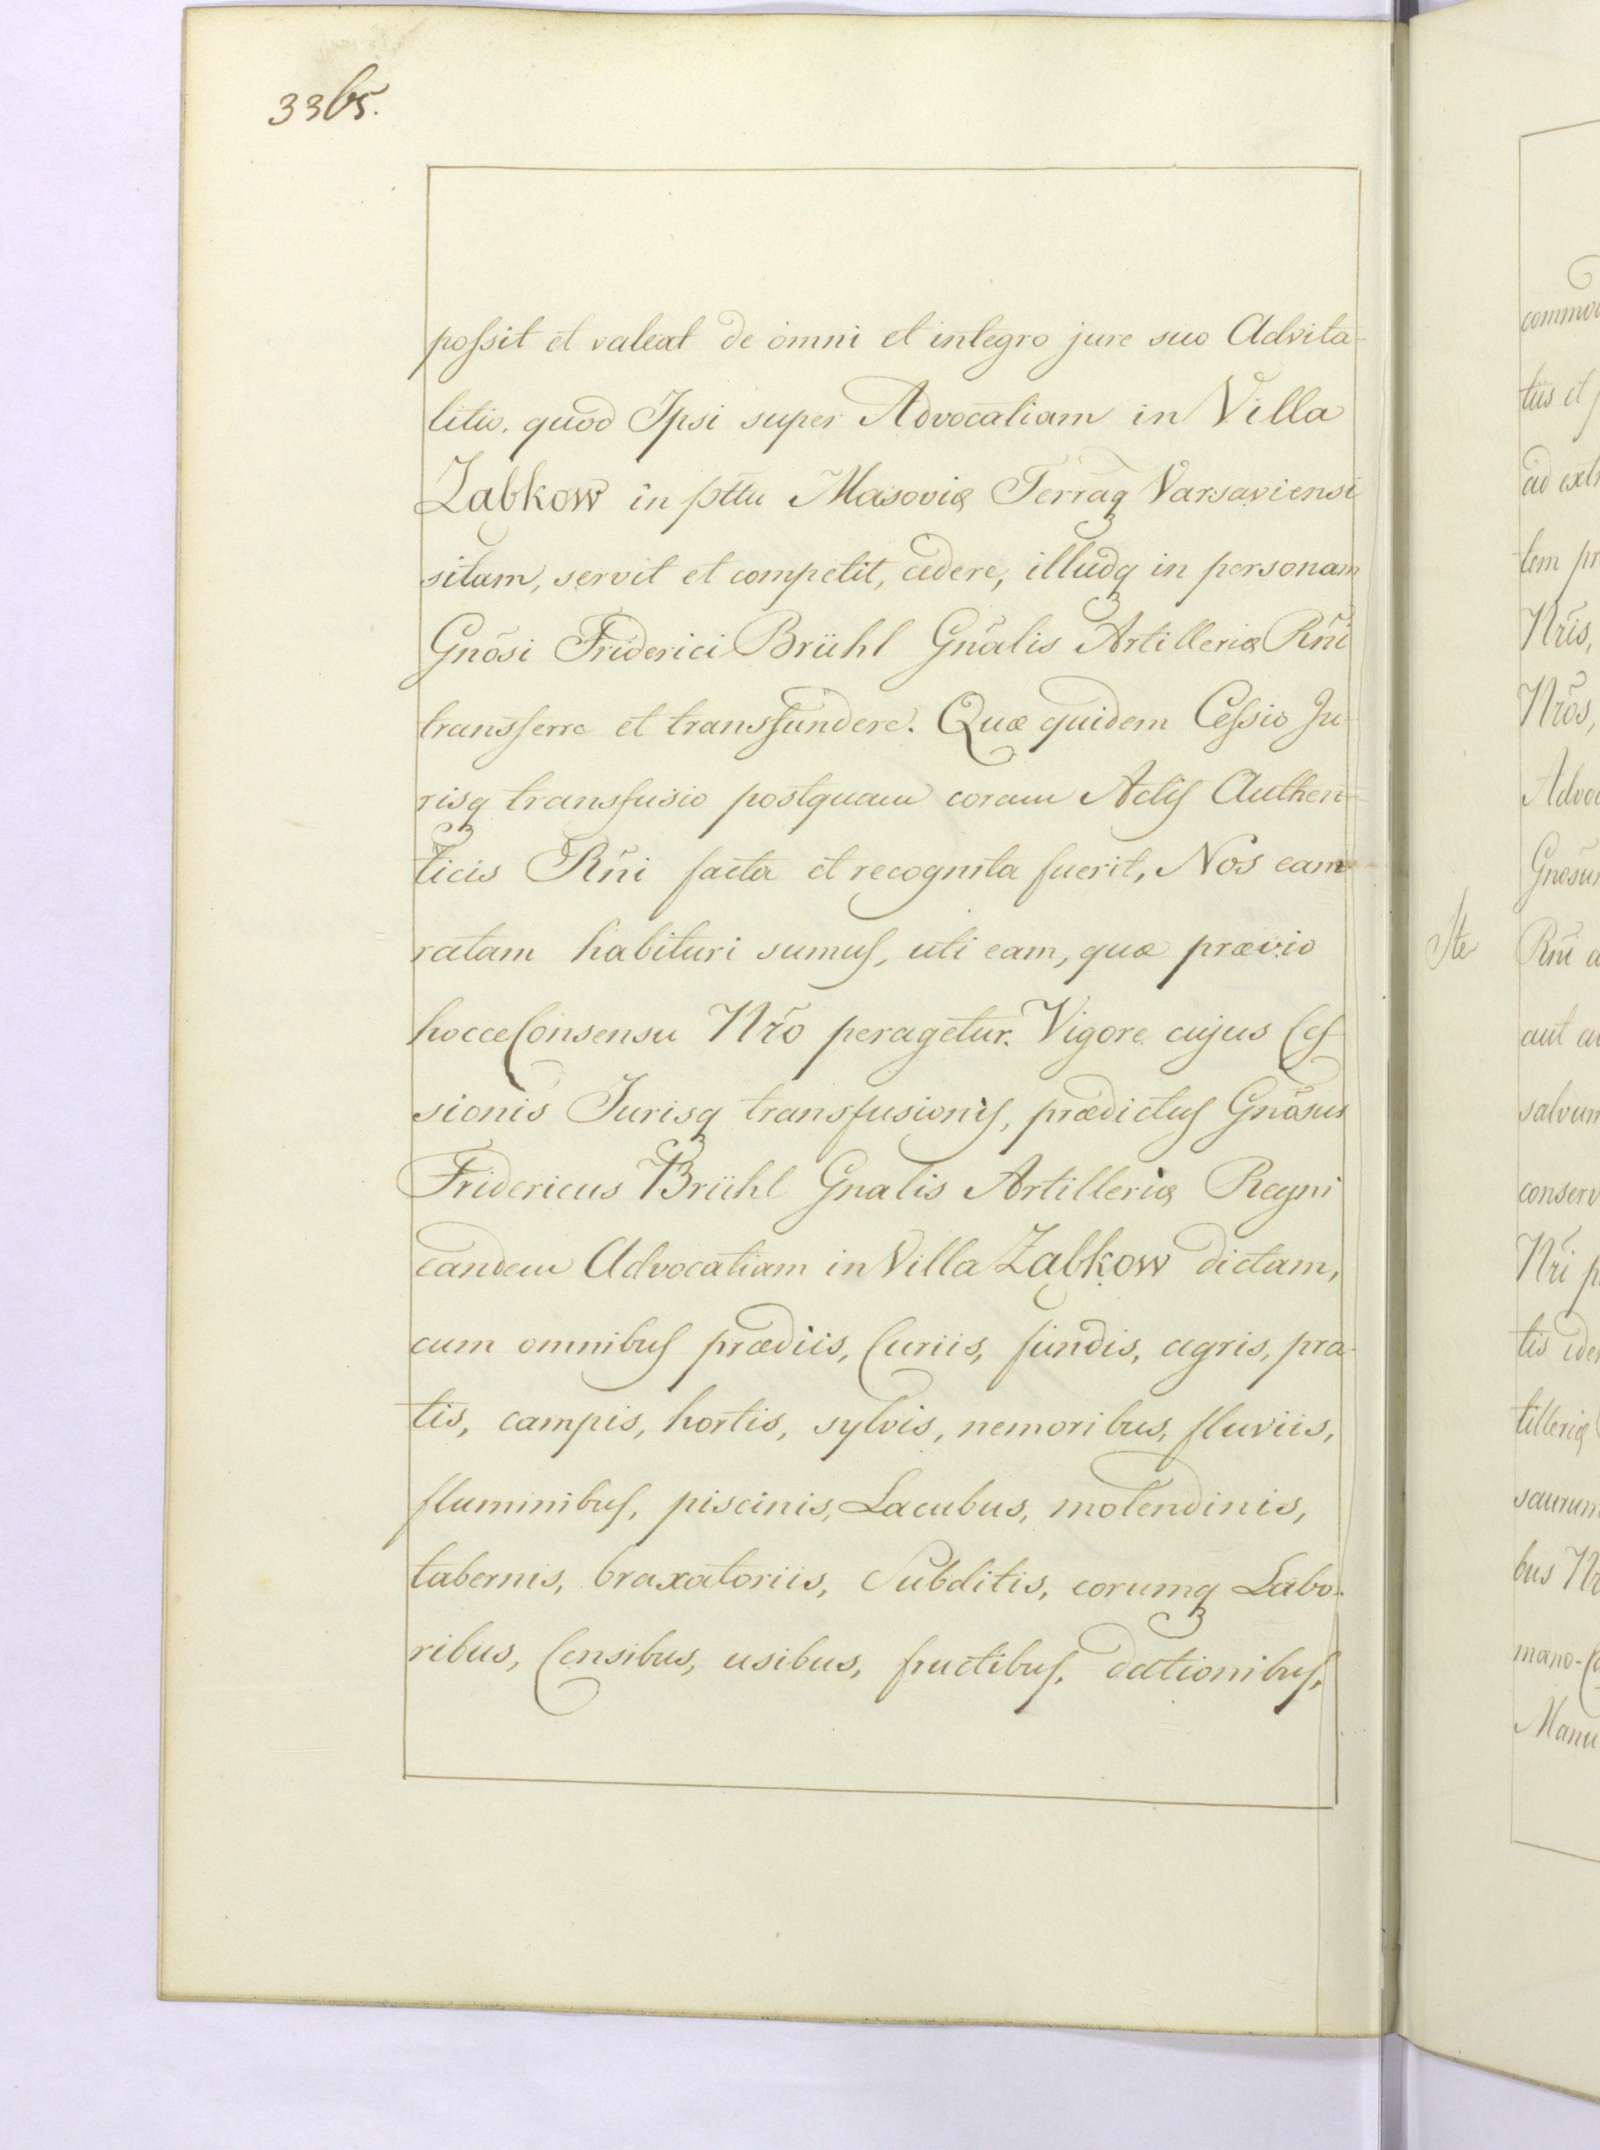 3365.
possit et valeat de omni et integro jure suo Advita-
litio. quod Ipsi super Advocatiam in Villa
Ząbkow in pttu Masoviæ Terraq Varsaviensi
sitam, servit et competit, cedere, illudq in personam
Gnõsi Friderici Brühl Gnãlis Artilleriæ Rñi
transferre et transfundere. Quæ quidem Cessio Ju-
risq transfusio postquam coram Actis Authen-
ticis Rñi facta et recognita fuerit, Nos eam
ratam habituri sumus, uti eam, quæ prævio
hocce Consensu Nr̃o peragetur. Vigore cujus Ces-
sionis Jurisq transfusionis, prædictus Gnõsus
Fridericus Brühl Gnalis Artilleriæ Regni
eandem Advocatiam in Villa Ząbkow dictam,
cum omnibus prædiis, Curiis, fundis, agris, pra-
tis, campis, hortis, sylvis, nemoribus, fluviis,
fluminibus, piscinis, Lacubus, molendinis,
tabernis, braxatoriis, Subditis, eorumq Labo-
ribus, Censibus, usibus, fructibus, dationibus,
tiis et
Nr̃is,
Nr̃os,
Rñi
conserv
Nr̃i
tilleriæ